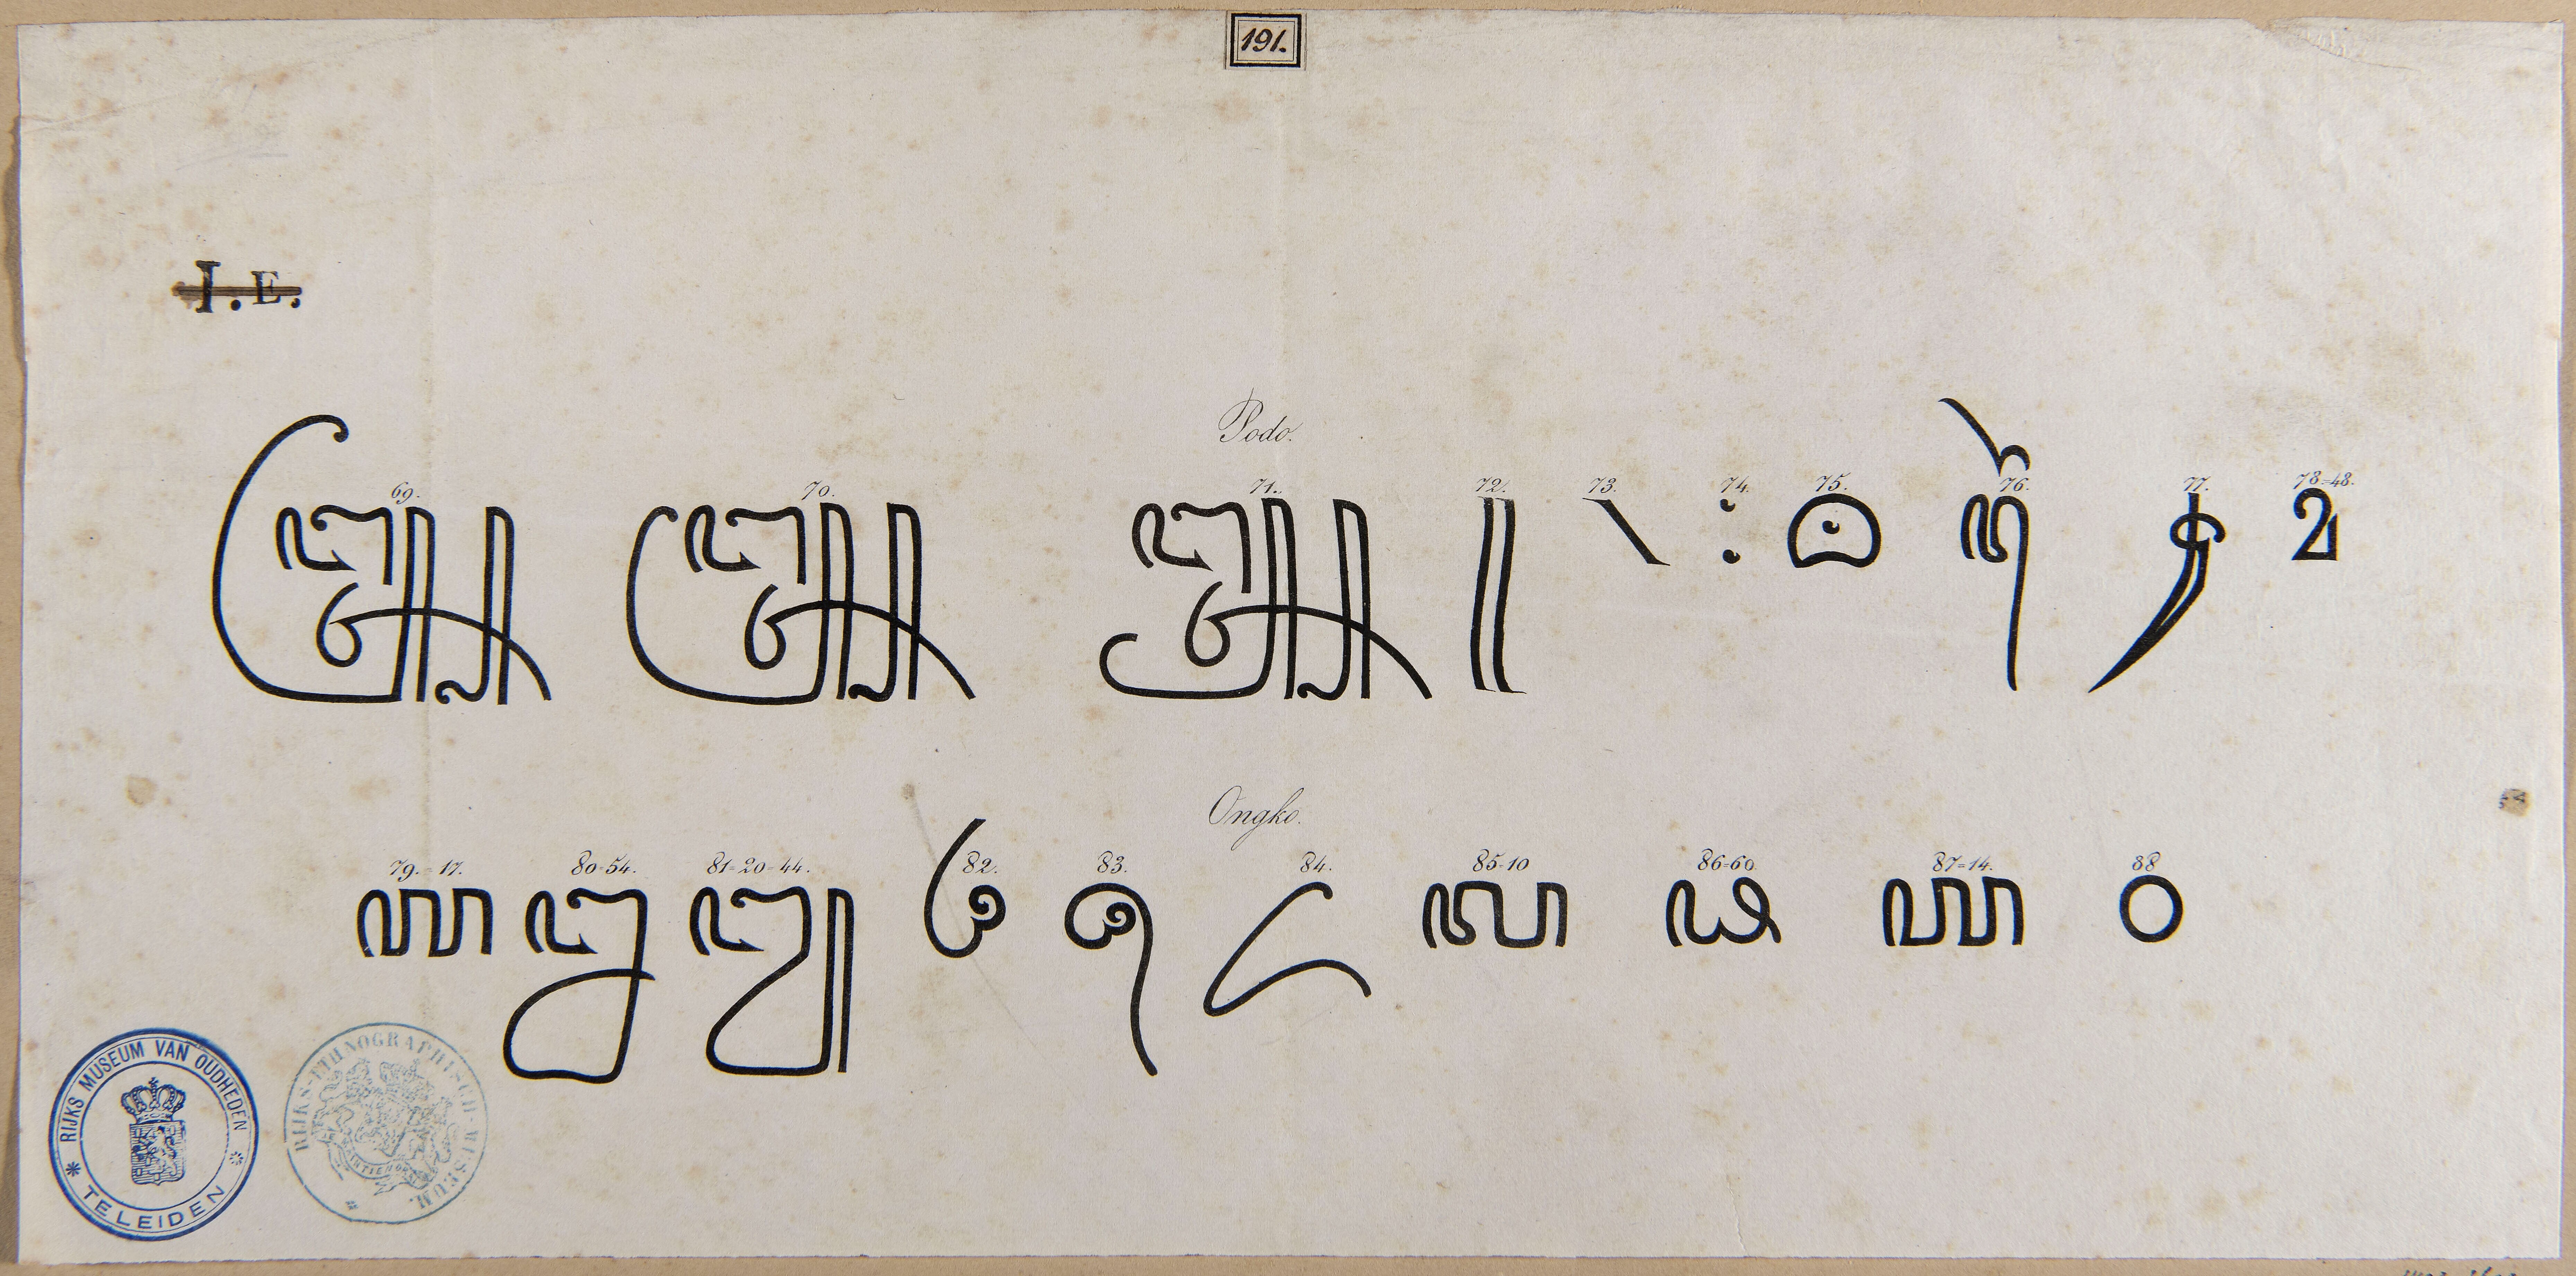 191.
I.E.
Podo.
69. 70. 71. 72. 73. 74. 75. 76. 77. 78=48.
꧅ ꧄ ꧃ ꧋ ꧈ ꧇
Ongko.
79.=17. 80=54. 81=20=44. 82. 83. 84. 85=10 86=60. 87=14. 88
꧑ ꧒ ꧓ ꧔ ꧕ ꧖ ꧗ ꧘ ꧙ ꧐
RIJKS MUSEUM VAN OUDHEDEN TE LEIDEN
RIJKS-ETHNOGRAPHISCH-MUSEUM.